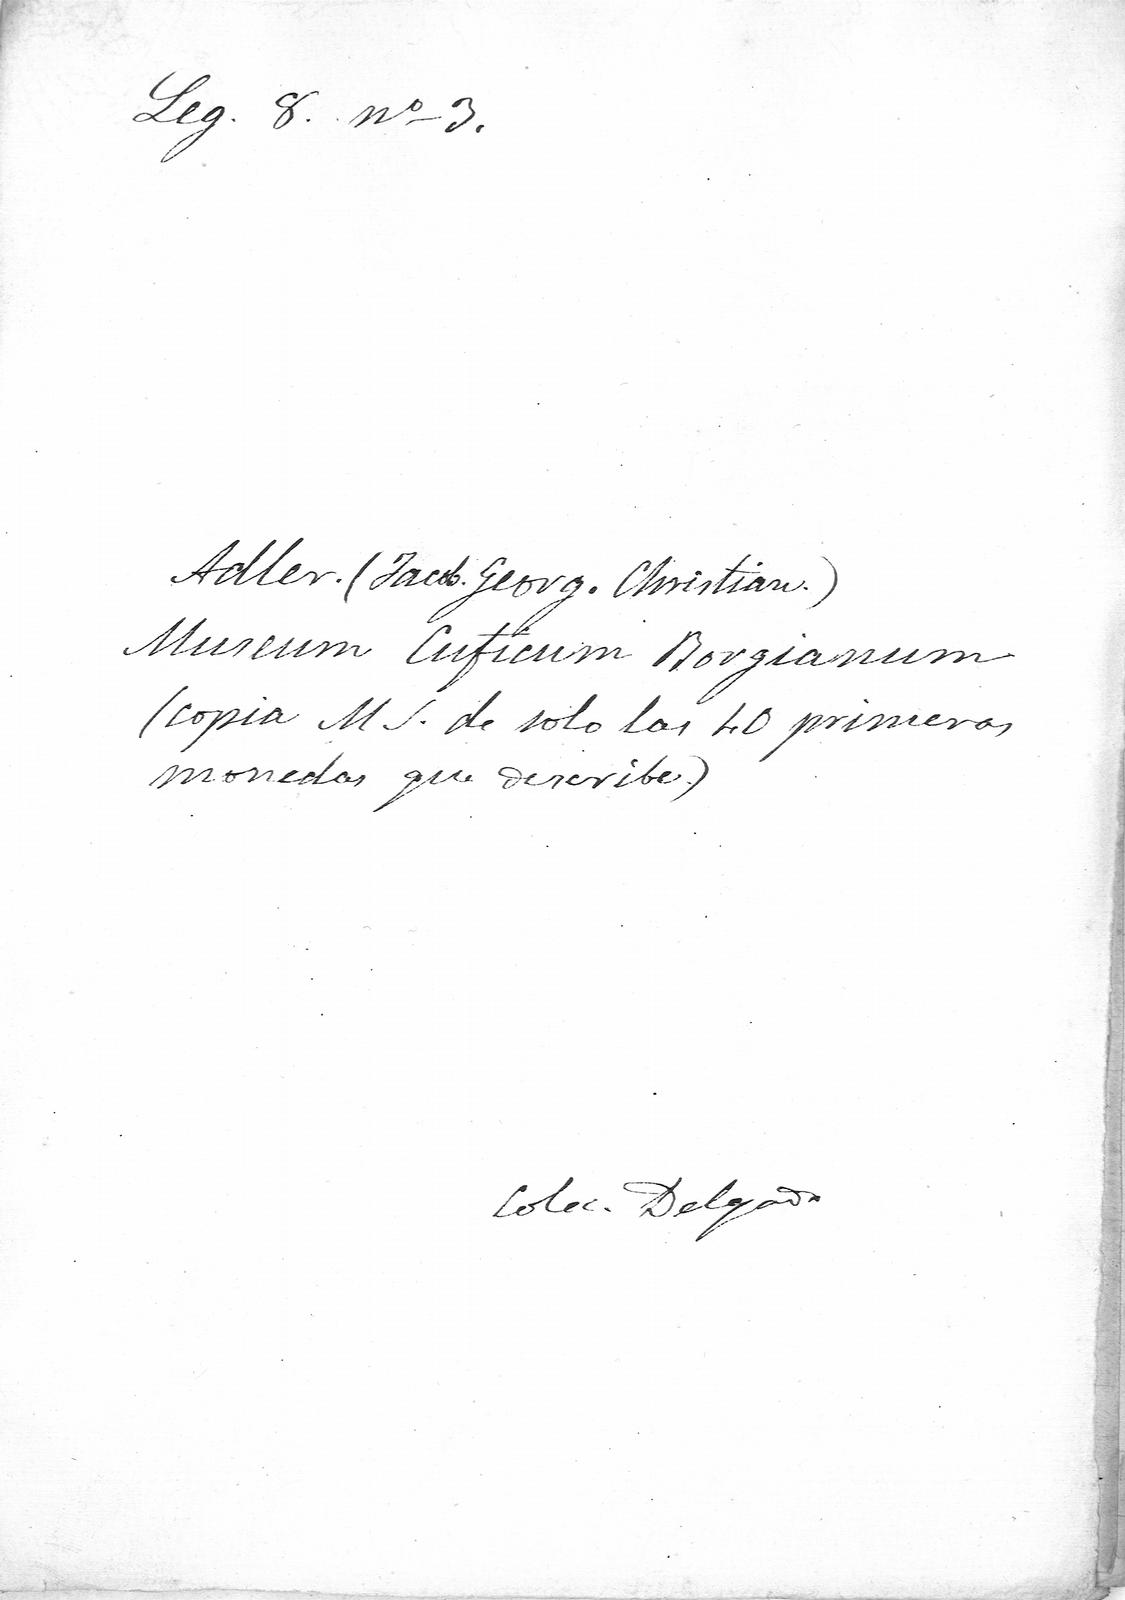 Leg. 8. nº 3.
Adler. (Jacob. Georg. Christian.)
Museum Cuficum Borgianum
(copia MS. de solo las 40 primeras
monedas que describe)
Colec. Delgado